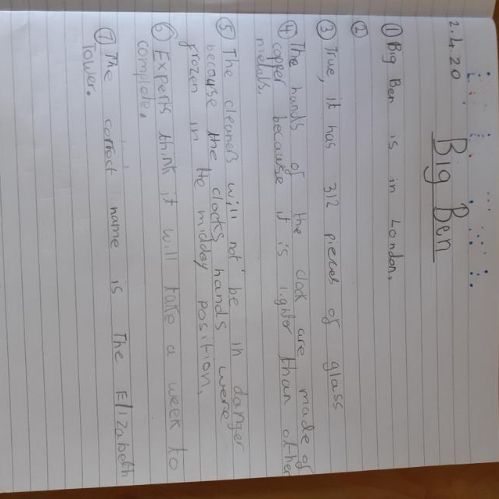 2.4.20
Big Ben
① Big Ben is in London.
②
③ True, it has 312 pieces of glass
④ The hands of the clock are made of
copper because it is lighter than other
metals.
⑤ The cleaners will not be in danger
because the clocks hands were
frozen in the midday position.
⑥ Experts think it will take a week to
complete.
⑦ The correct name is The Elizabeth
Tower.